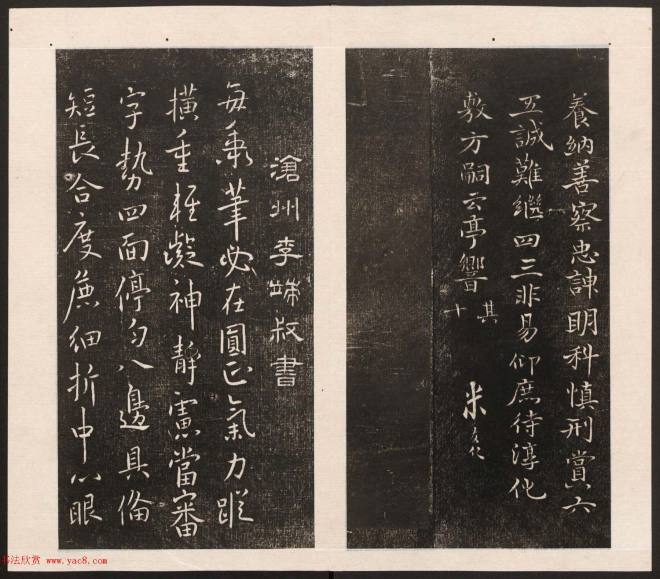 養納善察忠諫明科慎刑賞六
五誠難繼四三非易仰庶待淳化
敷方嗣云亭響
其十
米
滄州李端叔書
每秉筆必在圓正氣力蹤
橫重輕凝神靜慮當審
字勢四面停勻八邊具備
短長合度麁細折中心眼
书法欣赏 www.yac8.com